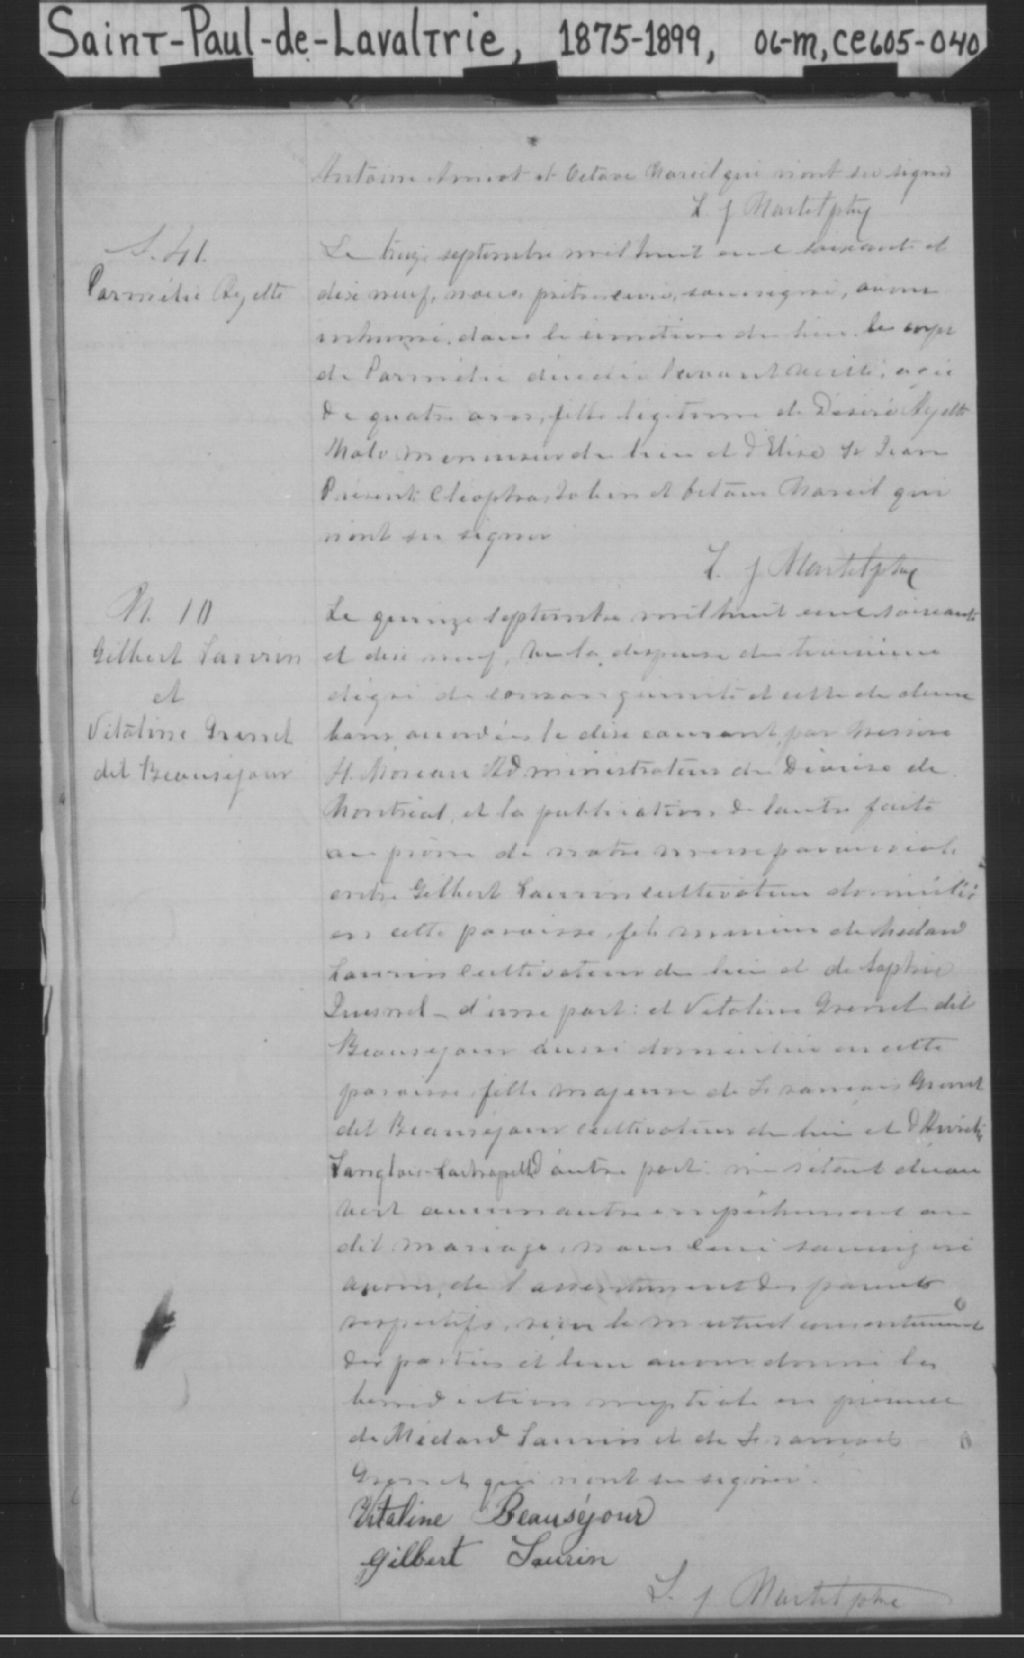 Saint-Paul-de-Lavaltrie, 1875-1899, 06-m, ce605-040
Antoine et Octave Mareil qui n'ont su signer
L. J. Martel ptre
S. 41.
Parmélie Ayette
Le treize septembre mil huit cent soixante et
dix neuf, nous prêtre curé, soussigné, avons
inhumé, dans le cimetière du lieu le corps
de Parmélie décédée l'avant veille, agée
de quatre ans, fille légitime de Désiré Ayette
Malo menuisier du lieu et d'Elise St Jean
Présents Cléophas et Octave Mareil qui
n'ont su signer
L. J. Martel ptre
M. 10
Gilbert Laurin
et
Vitaline Grenet
dit Beauséjour
Le quinze septembre mil huit cent soixante
et dix neuf, vu la dispense du troisième
dégré de consanguinité et celle de deux
bans accordées le dix courant par Messire
H. Moreau Administrateur du Diocèse de
Montréal, et la publication de l'autre faite
au prône de notre messe paroissiale
entre Gilbert Laurin cultivateur domicilié
en cette paroisse, fils mineur de Médard
Laurin cultivateur du lieu et de Sophie
Quesnel - d'une part: et Vitaline Grenet dit
Beauséjour aussi domiciliée en cette
paroisse, fille majeure de François Grenet
dit Beauséjour cultivateur du lieu et d'
Langlois d'autre part: ne s'étant décou
vert aucun autre empêchement au
dit mariage, nous curé soussigné
avons, de l'assentiment des parents
respectifs, reçu le mutuel consentement
des parties et leur avons donné la
bénédiction nuptiale en présence
de Médard Laurin et de François
Grenet qui n'ont su signer.
Vitaline Beauséjour
Gilbert Laurin
L. J. Martel ptre